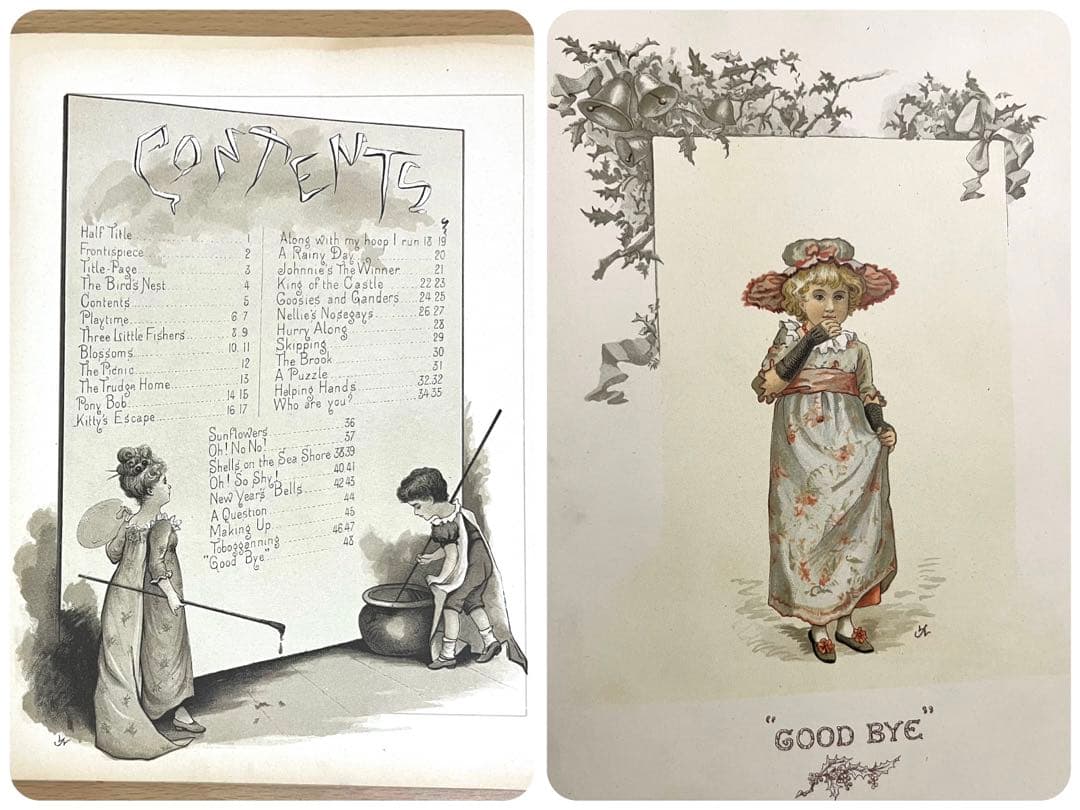 CONTENTS
Half Title 1
Frontispiece 2
Title-Page 3
The Bird's Nest 4
Contents 5
Playtime 6 7
Three Little Fishers 8.9
Blossoms 10. 11
The Picnic 12
The Trudge Home 13
Pony Bob 14 15
Kitty's Escape 16 17
Along with my hoop I run 18 19
A Rainy Day 20
Johnnie's The Winner 21
King of the Castle 22 23
Goosies and Ganders 24 25
Nellie's Nosegays 26 27
Hurry Along 28
Skipping 29
The Brook 30
A Puzzle 31
Helping Hands 32.32
Who are you? 34 35
Sunflowers 36
Oh! No No! 37
Shells on the Sea Shore 38 39
Oh! So Shy! 40.41
New Year's Bells 42 43
A Question 44
Making Up 45
Tobogganning 46.47
"Good Bye" 48
"GOOD BYE"